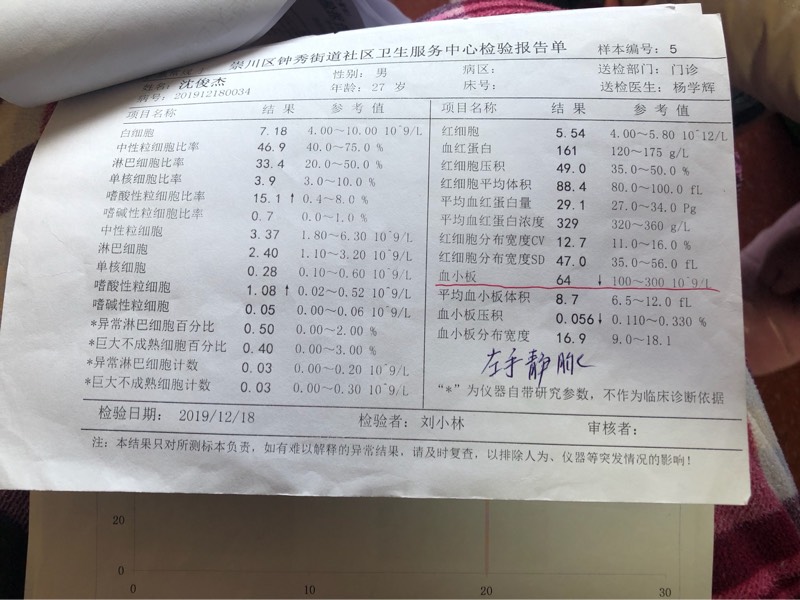 崇川区钟秀街道社区卫生服务中心检验报告单 样本编号: 5
姓名: 沈俊杰 性别: 男 病区: 送检部门: 门诊
病号: 201912180034 年龄: 27 岁 床号: 送检医生: 杨学辉
项目名称 结 果 参 考 值 项目名称 结 果 参 考 值
白细胞 7.18 4.00~10.00 10^9/L 红细胞 5.54 4.00~5.80 10^12/L
中性粒细胞比率 46.9 40.0~75.0 % 血红蛋白 161 120~175 g/L
淋巴细胞比率 33.4 20.0~50.0 % 红细胞压积 49.0 35.0~50.0 %
单核细胞比率 3.9 3.0~10.0 % 红细胞平均体积 88.4 80.0~100.0 fL
嗜酸性粒细胞比率 15.1 ↑ 0.4~8.0 % 平均血红蛋白量 29.1 27.0~34.0 Pg
嗜碱性粒细胞比率 0.7 0.0~1.0 % 平均血红蛋白浓度 329 320~360 g/L
中性粒细胞 3.37 1.80~6.30 10^9/L 红细胞分布宽度CV 12.7 11.0~16.0 %
淋巴细胞 2.40 1.10~3.20 10^9/L 红细胞分布宽度SD 47.0 35.0~56.0 fL
单核细胞 0.28 0.10~0.60 10^9/L 血小板 64 ↓ 100~300 10^9/L
嗜酸性粒细胞 1.08 ↑ 0.02~0.52 10^9/L 平均血小板体积 8.7 6.5~12.0 fL
嗜碱性粒细胞 0.05 0.00~0.06 10^9/L 血小板压积 0.056 ↓ 0.110~0.330 %
*异常淋巴细胞百分比 0.50 0.00~2.00 % 血小板分布宽度 16.9 9.0~18.1
*巨大不成熟细胞百分比 0.40 0.00~3.00 %
*异常淋巴细胞计数 0.03 0.00~0.20 10^9/L 左手静脉
*巨大不成熟细胞计数 0.03 0.00~0.30 10^9/L "*"为仪器自带研究参数, 不作为临床诊断依据
检验日期: 2019/12/18 检验者: 刘小林 审核者:
注: 本结果只对所测标本负责, 如有难以解释的异常结果, 请及时复查, 以排除人为、仪器等突发情况的影响!
20
0
0 10 20 30